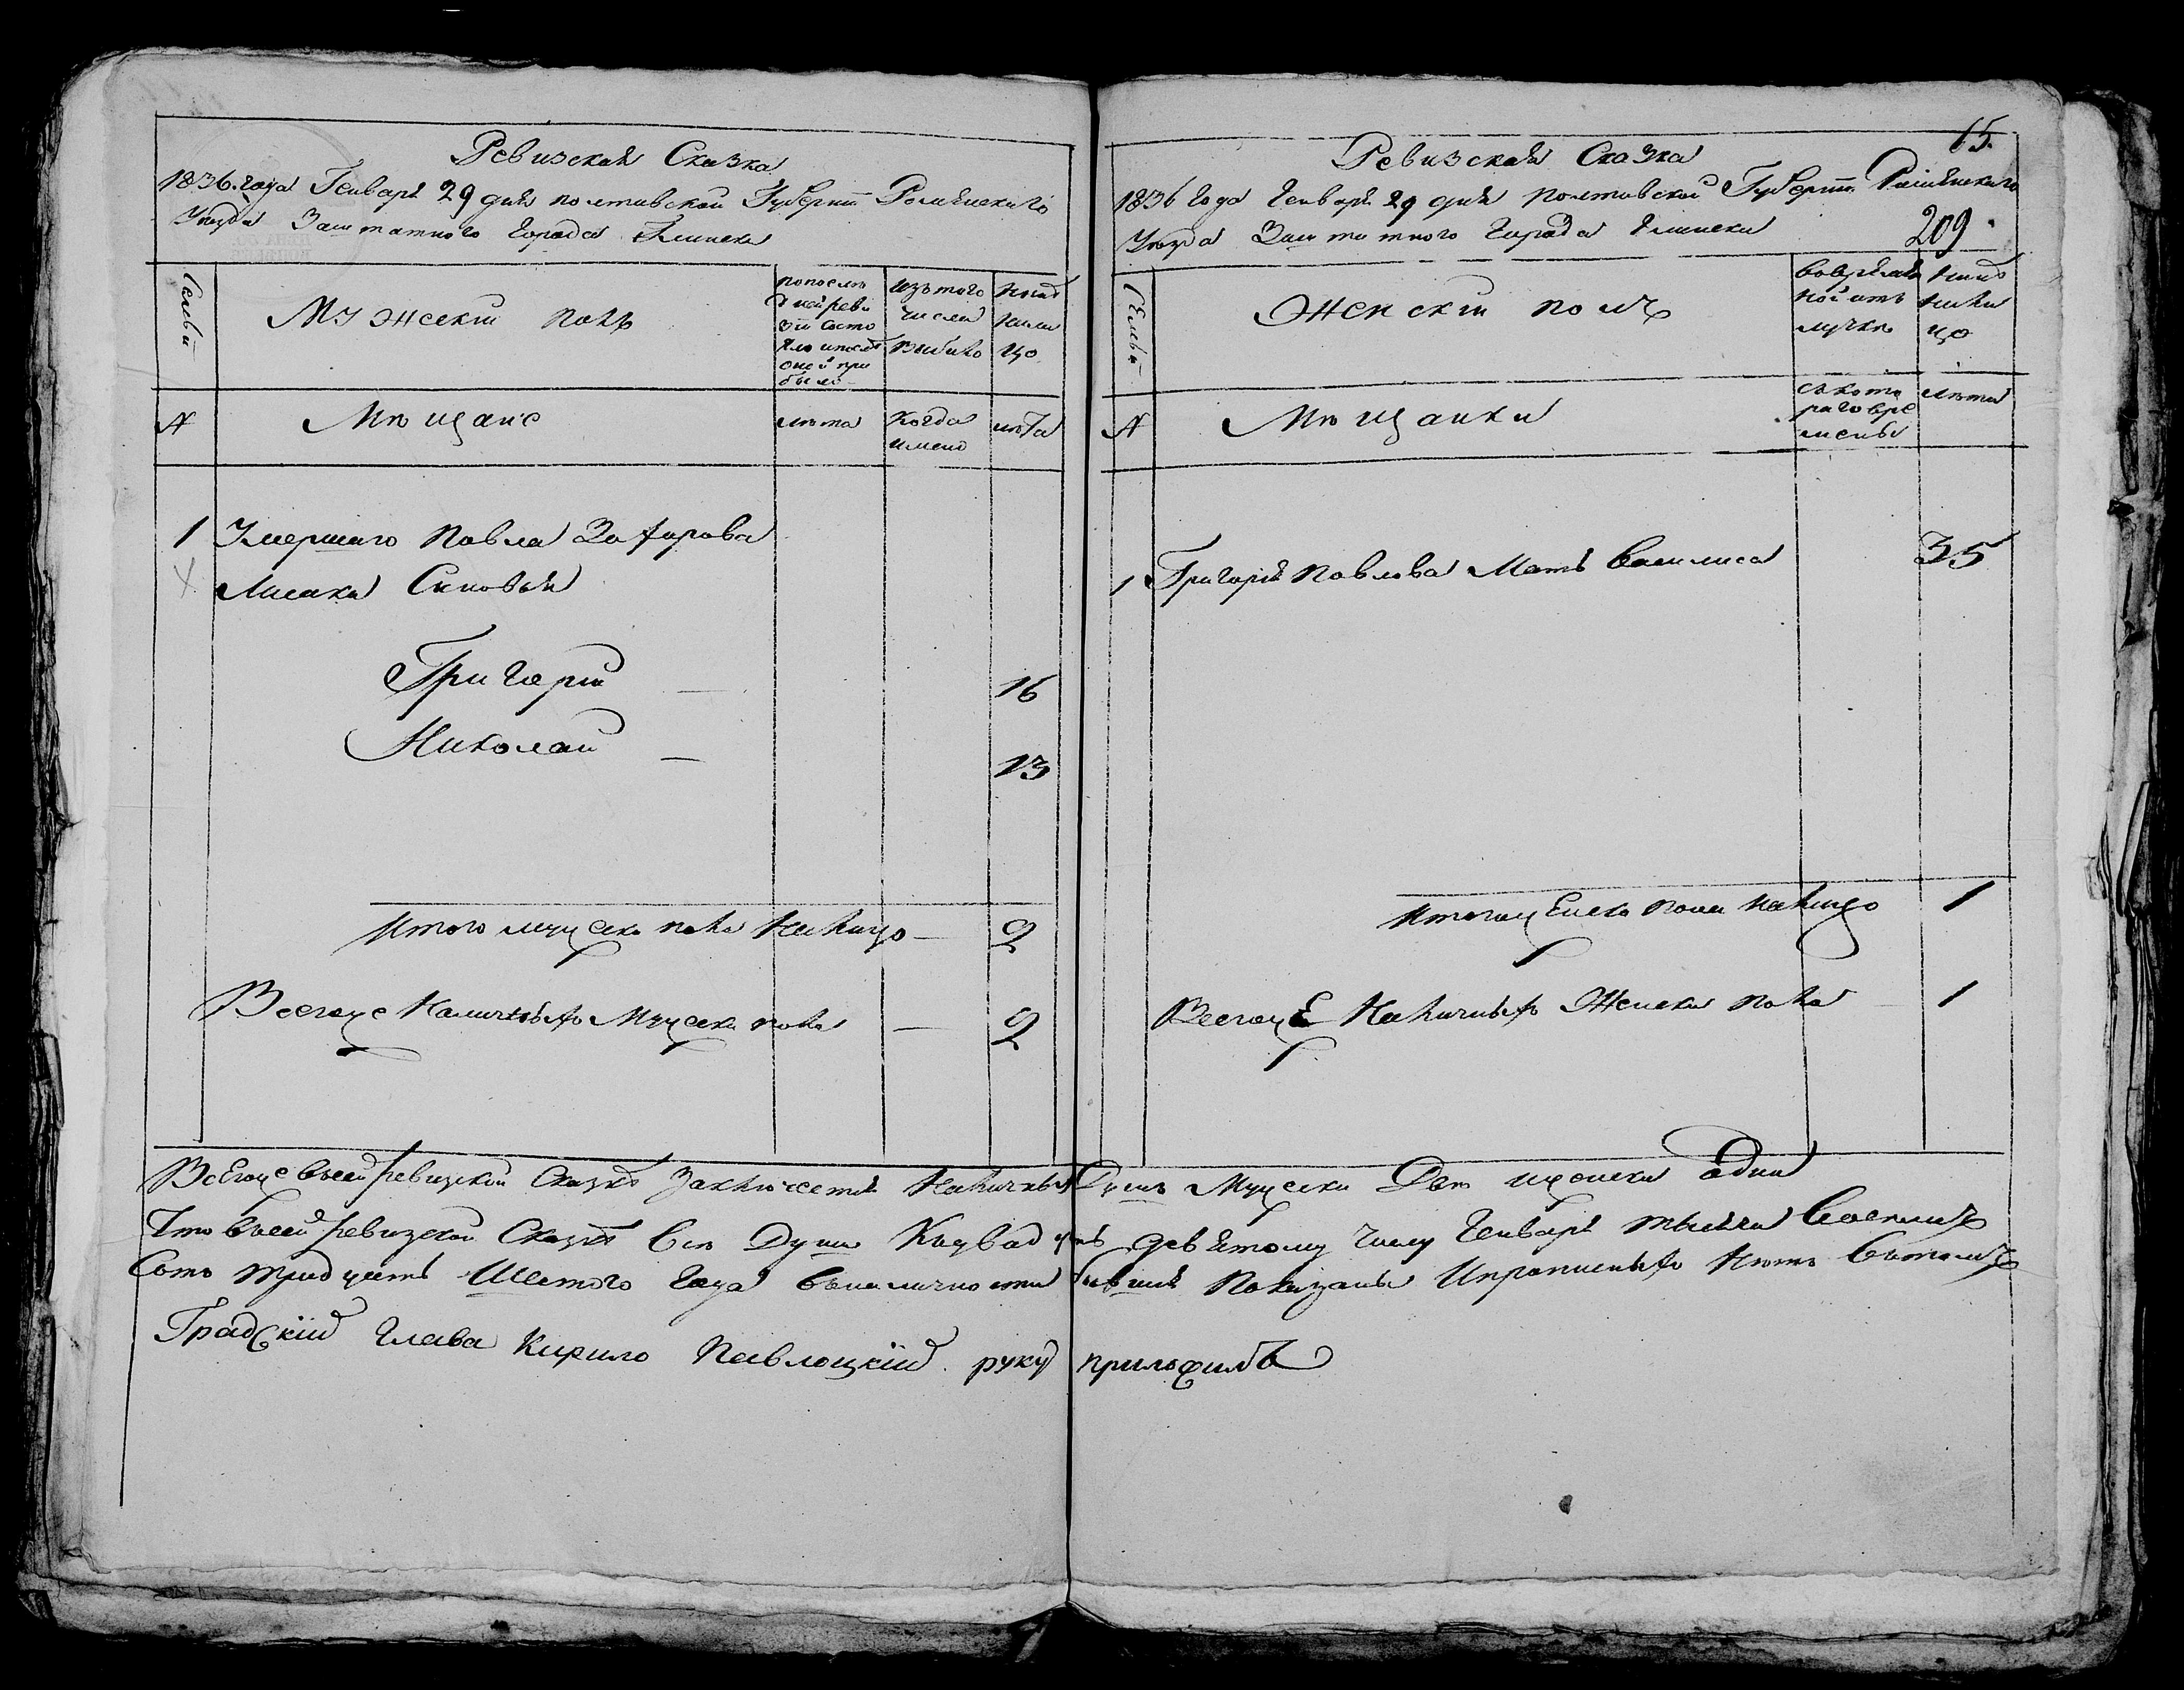 Ревизская Сказка
1836. года Генваря 29 дня полтавской Губернии Роменского
Уезда Заштатного Города Глинска
Семьи
Мужеский полъ
по последней ревизии состояло и после оной прибыло
Изъ того числа выбыло
Ныне на лицо
№
Мѣщане
лѣта
Когда имено
лѣта
1 Умершаго Павла Захарова
Лисака Сыновья
Григорий — 16
Николай — 13
Итого мужеска пола на лицо — 2
Всего же Наличныхъ Мужеска пола — 2
15.
Ревизская Сказка
1836 года Генваря 29 дня полтавской Губернии Роменского
Уезда Заштатного Города Глинска
209
Семьи
Женский полъ
Во временной отлучке
Ныне на лицо
№
Мѣщанки
съ которого времены
лѣта
1 Григория Павлова Мать Василиса 35
Итого женска пола на лицо 1
Всего же Наличныхъ Женска пола — 1
Всего же въсей ревизской Сказке Заключается Наличныхъ Душъ Мужеска Две женска одна
Что въсей ревизской Сказке Все Души Кодвадцать девятому числу Генваря тысяча Восемъ
Сотъ тридцать Шестого года въналичности бывшия Показаны Ипрописныхъ Нетъ Вътомъ
Градский Глава Кирило Павлоцкий руку приложилъ